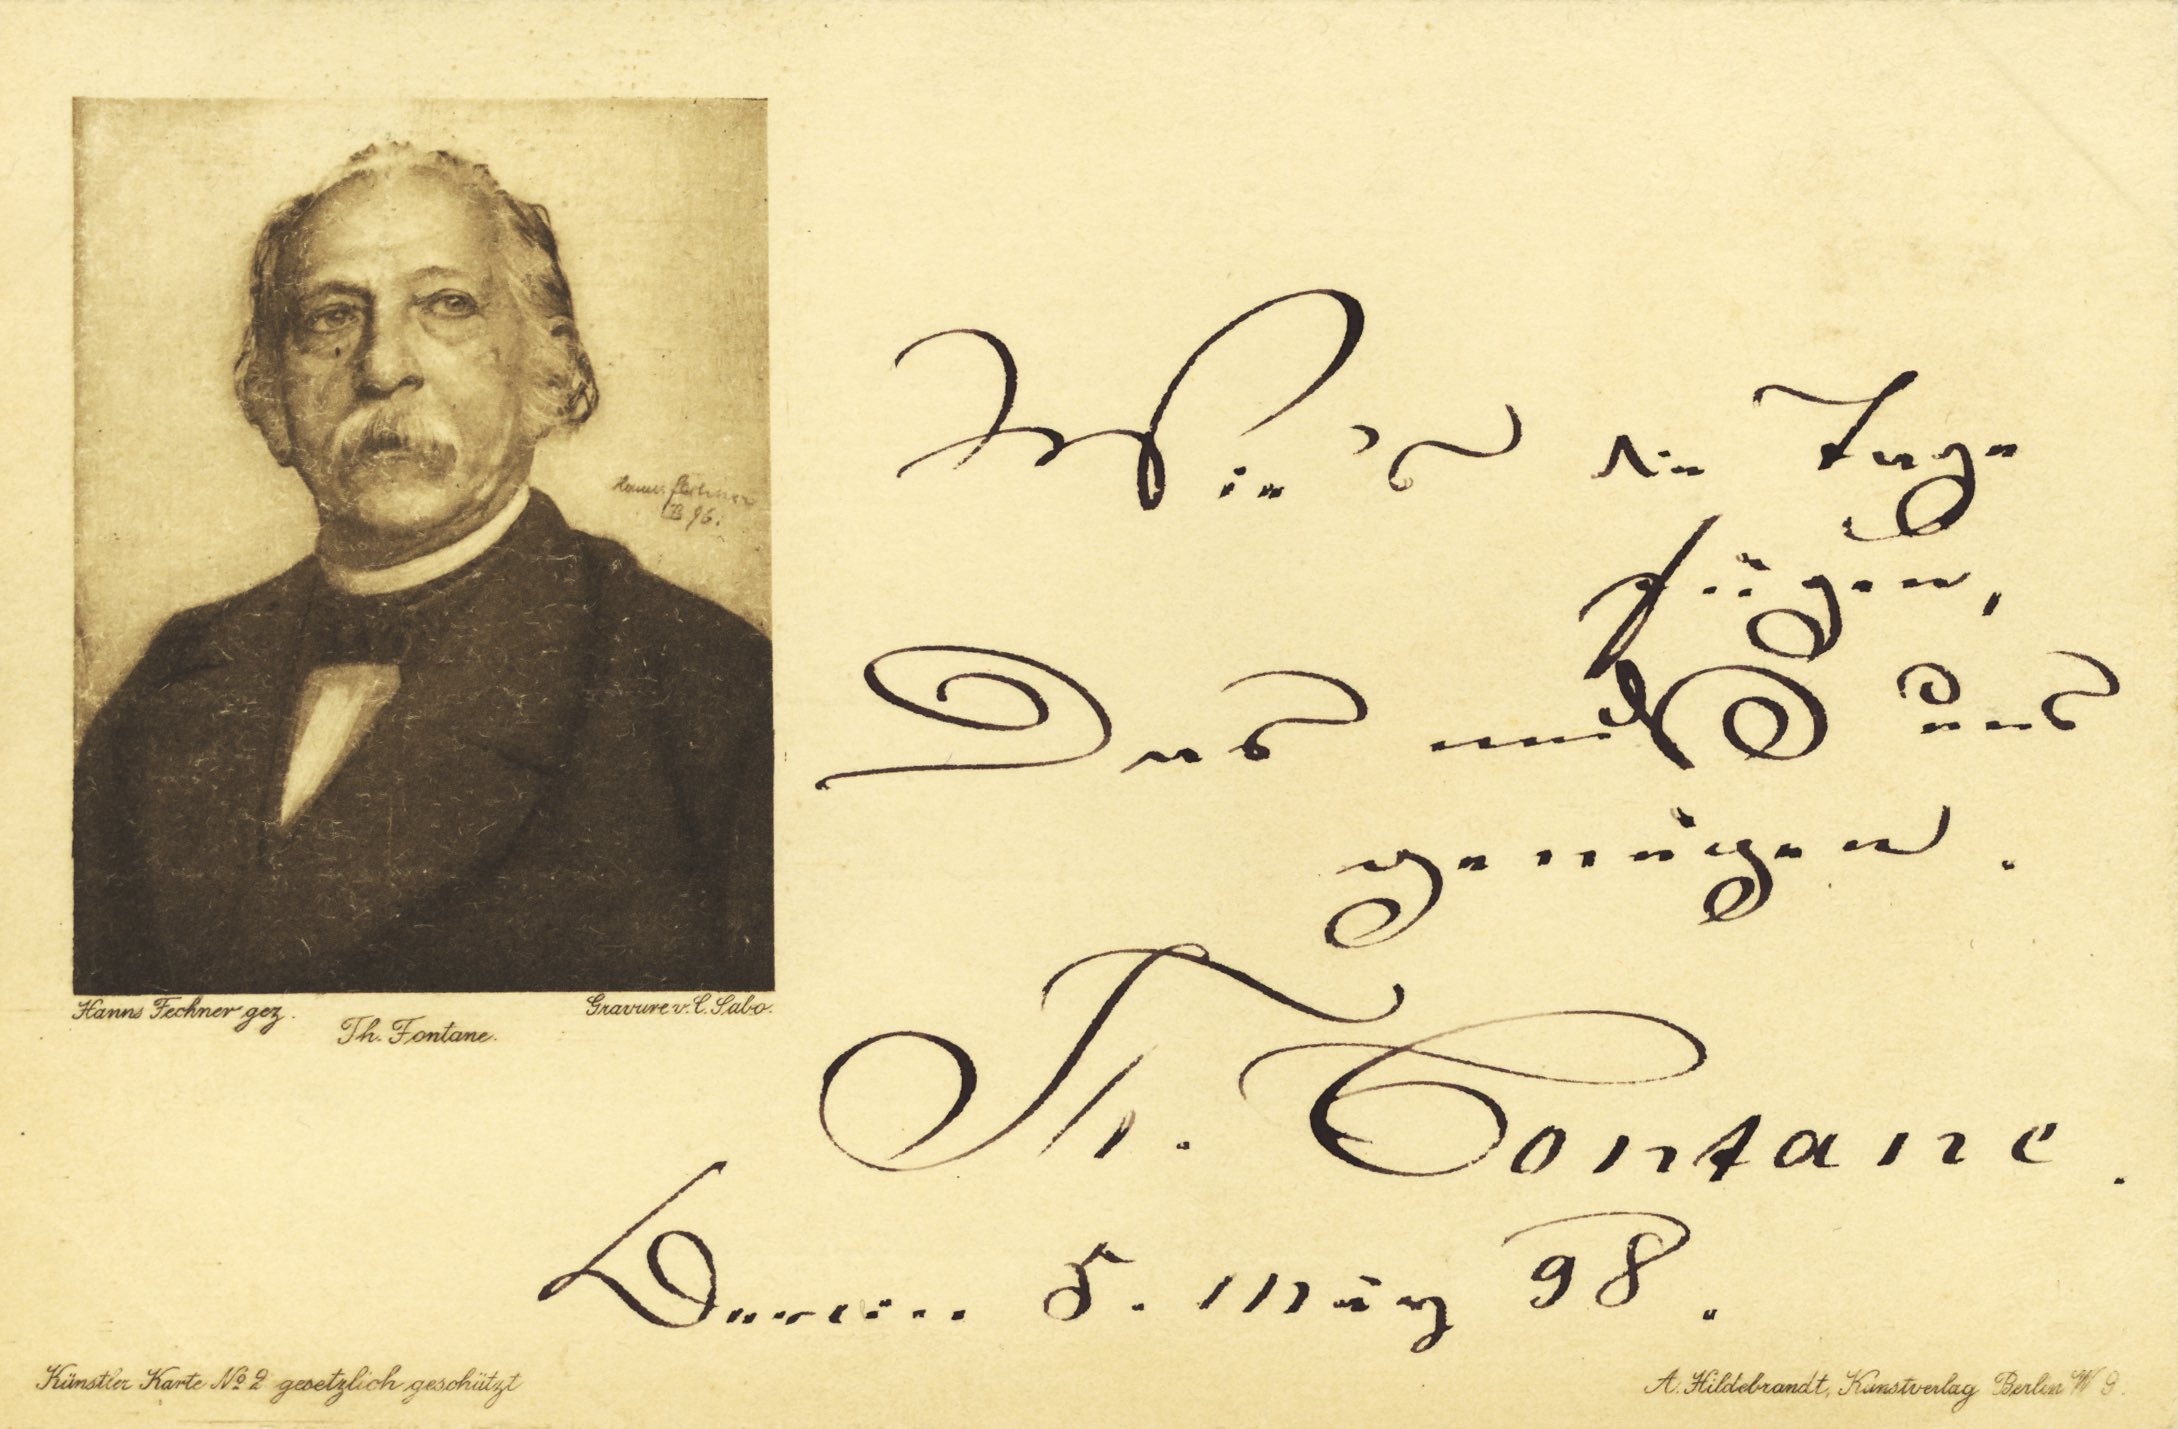 Wie 's die Tage
fügen,
Das muß uns
genügen.
Th. Fontane.
Berlin 5. März 98.
Hanns Fechner
B 96.
Hanns Fechner gez.
Gravure v. C. Sabo.
Th. Fontane.
Künstler Karte No 2 gesetzlich geschützt
A. Hildebrandt, Kunstverlag Berlin W 9.